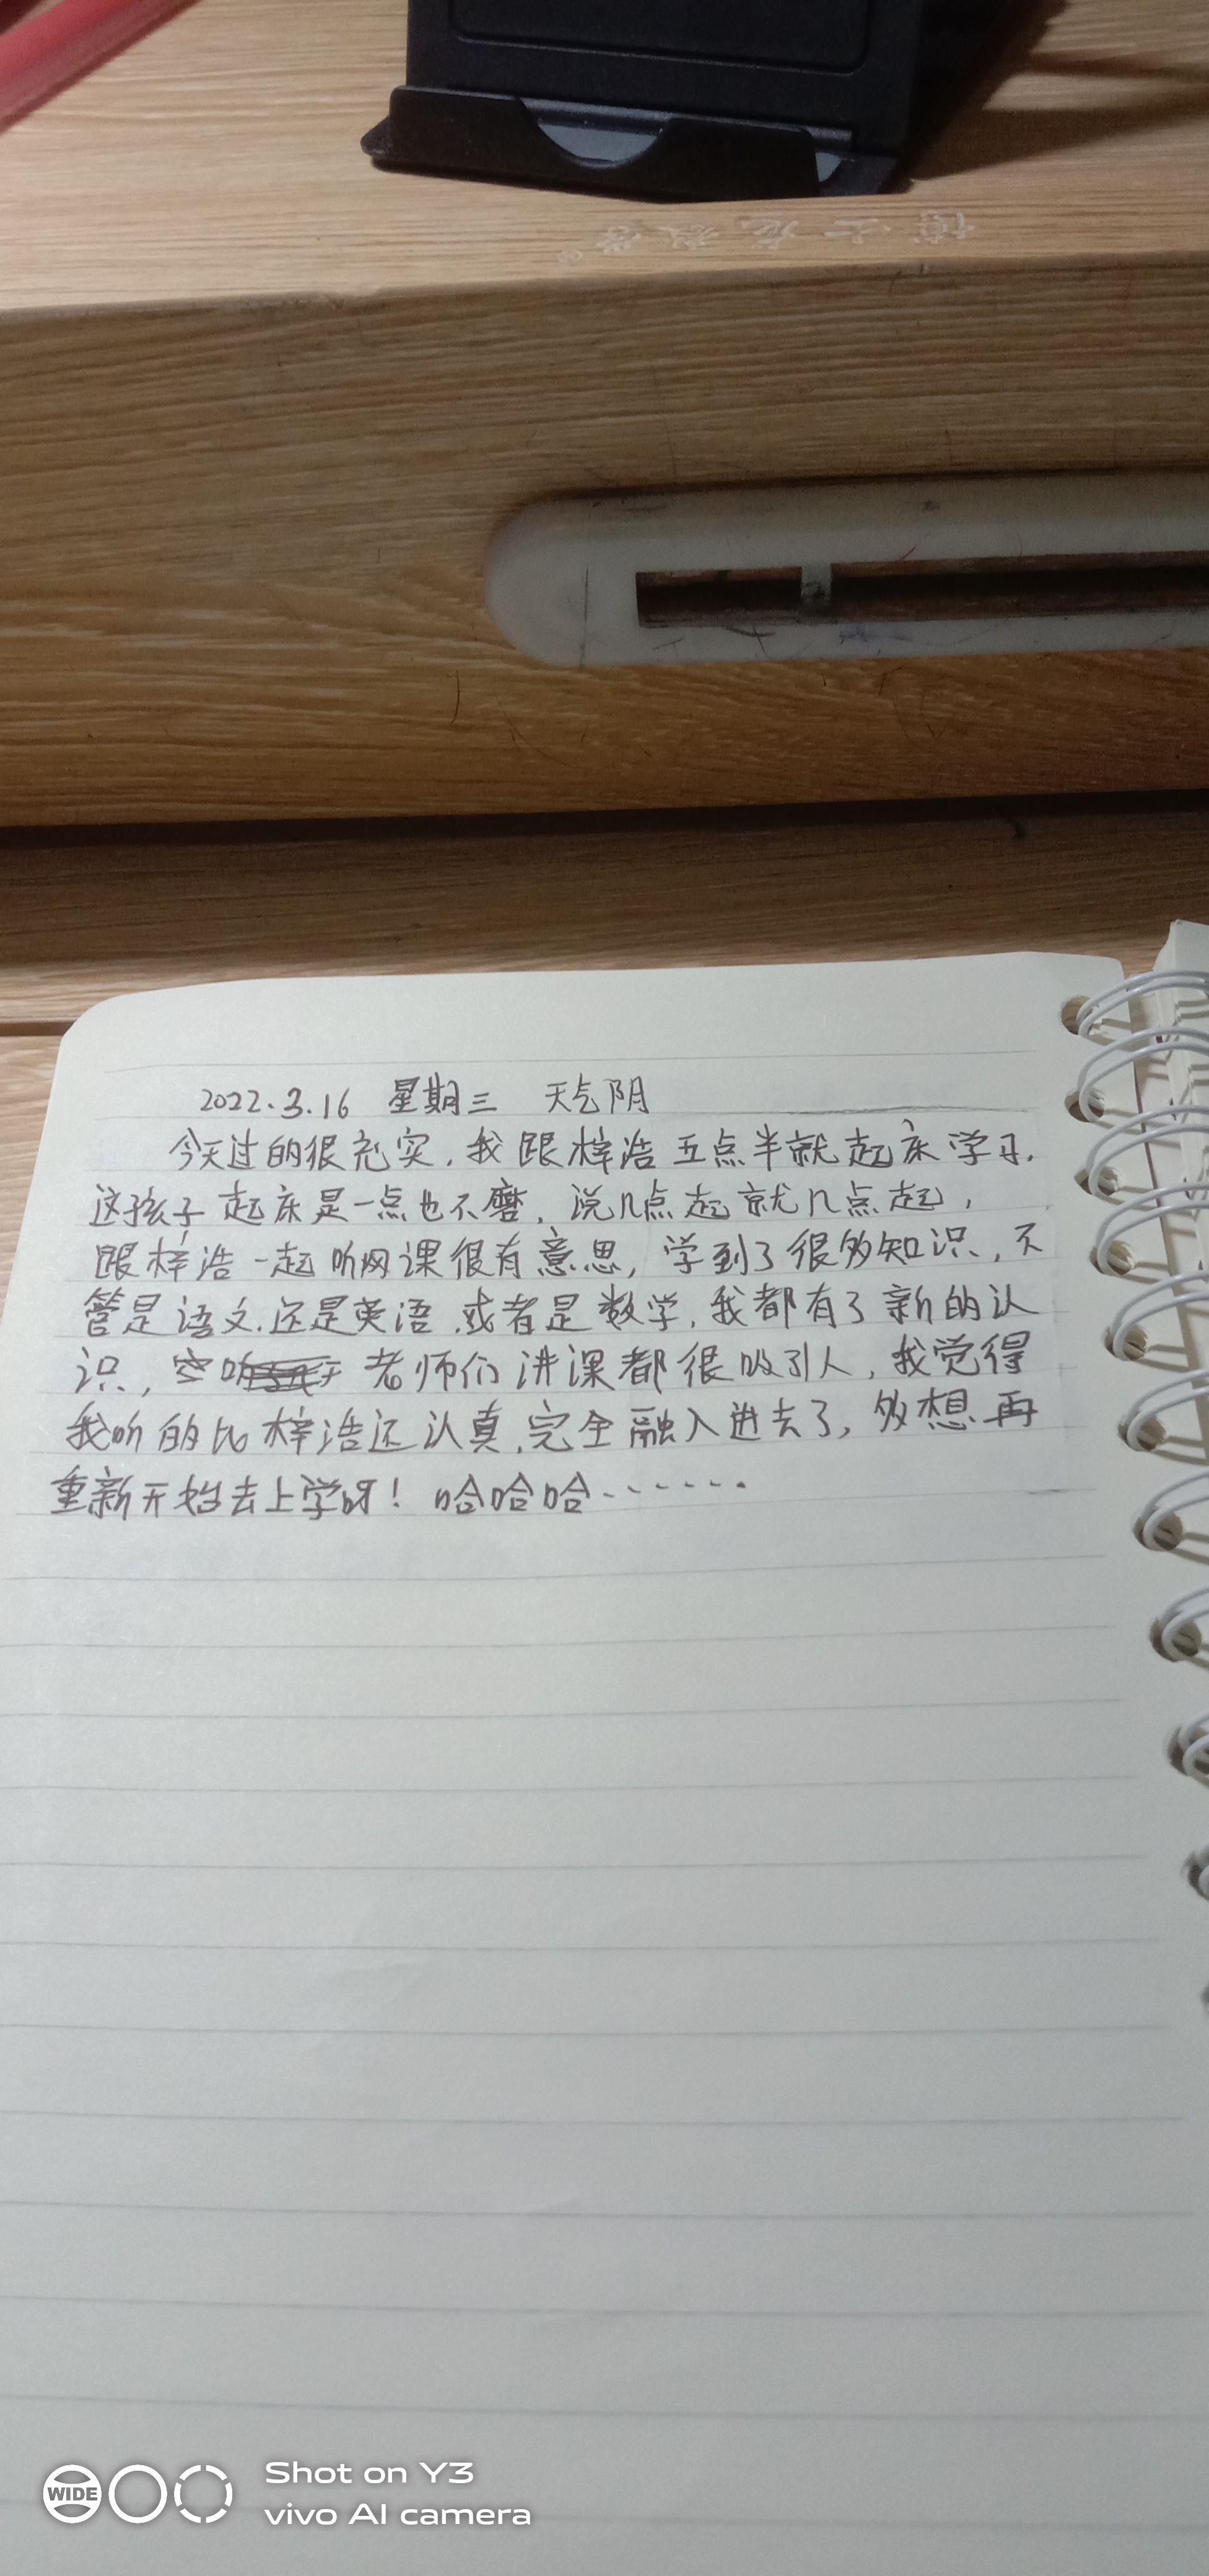 博士龙教学®
2022.3.16 星期三 天气阴
今天过的很充实,我跟梓浩五点半就起床学习.
这孩子起床是一点也不磨,说几点起就几点起,
跟梓浩一起听网课很有意思,学到了很多知识,不
管是语文.还是英语.或者是数学,我都有了新的认
识, 老师们讲课都很吸引人,我觉得
我听的比梓浩还认真,完全融入进去了,多想再
重新开始去上学呀!哈哈哈.......
WIDE
Shot on Y3
vivo AI camera